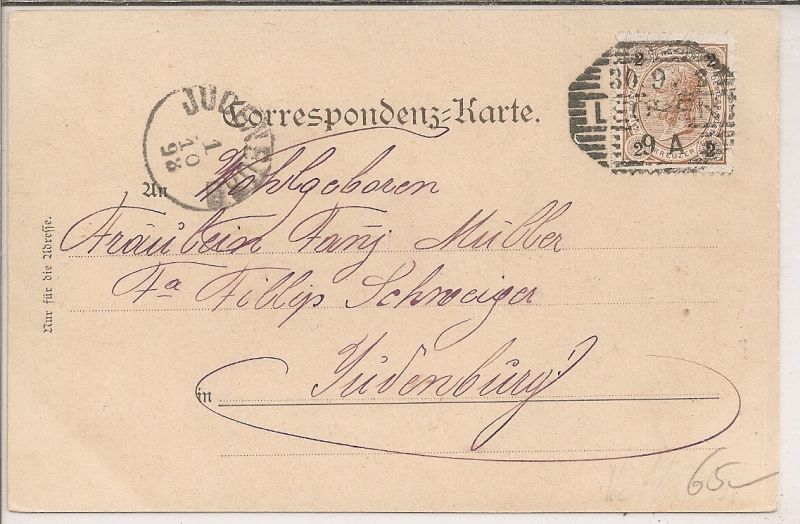 Correspondenz-Karte.
JUDENBURG
1
10
98
2 2
30 9
9 A
2 KREUZER 2
An Wohlgeboren
Fräulein Fanj Müller
Fa Fillip Schweiger
in Judenburg
Nur für die Adresse.
65-